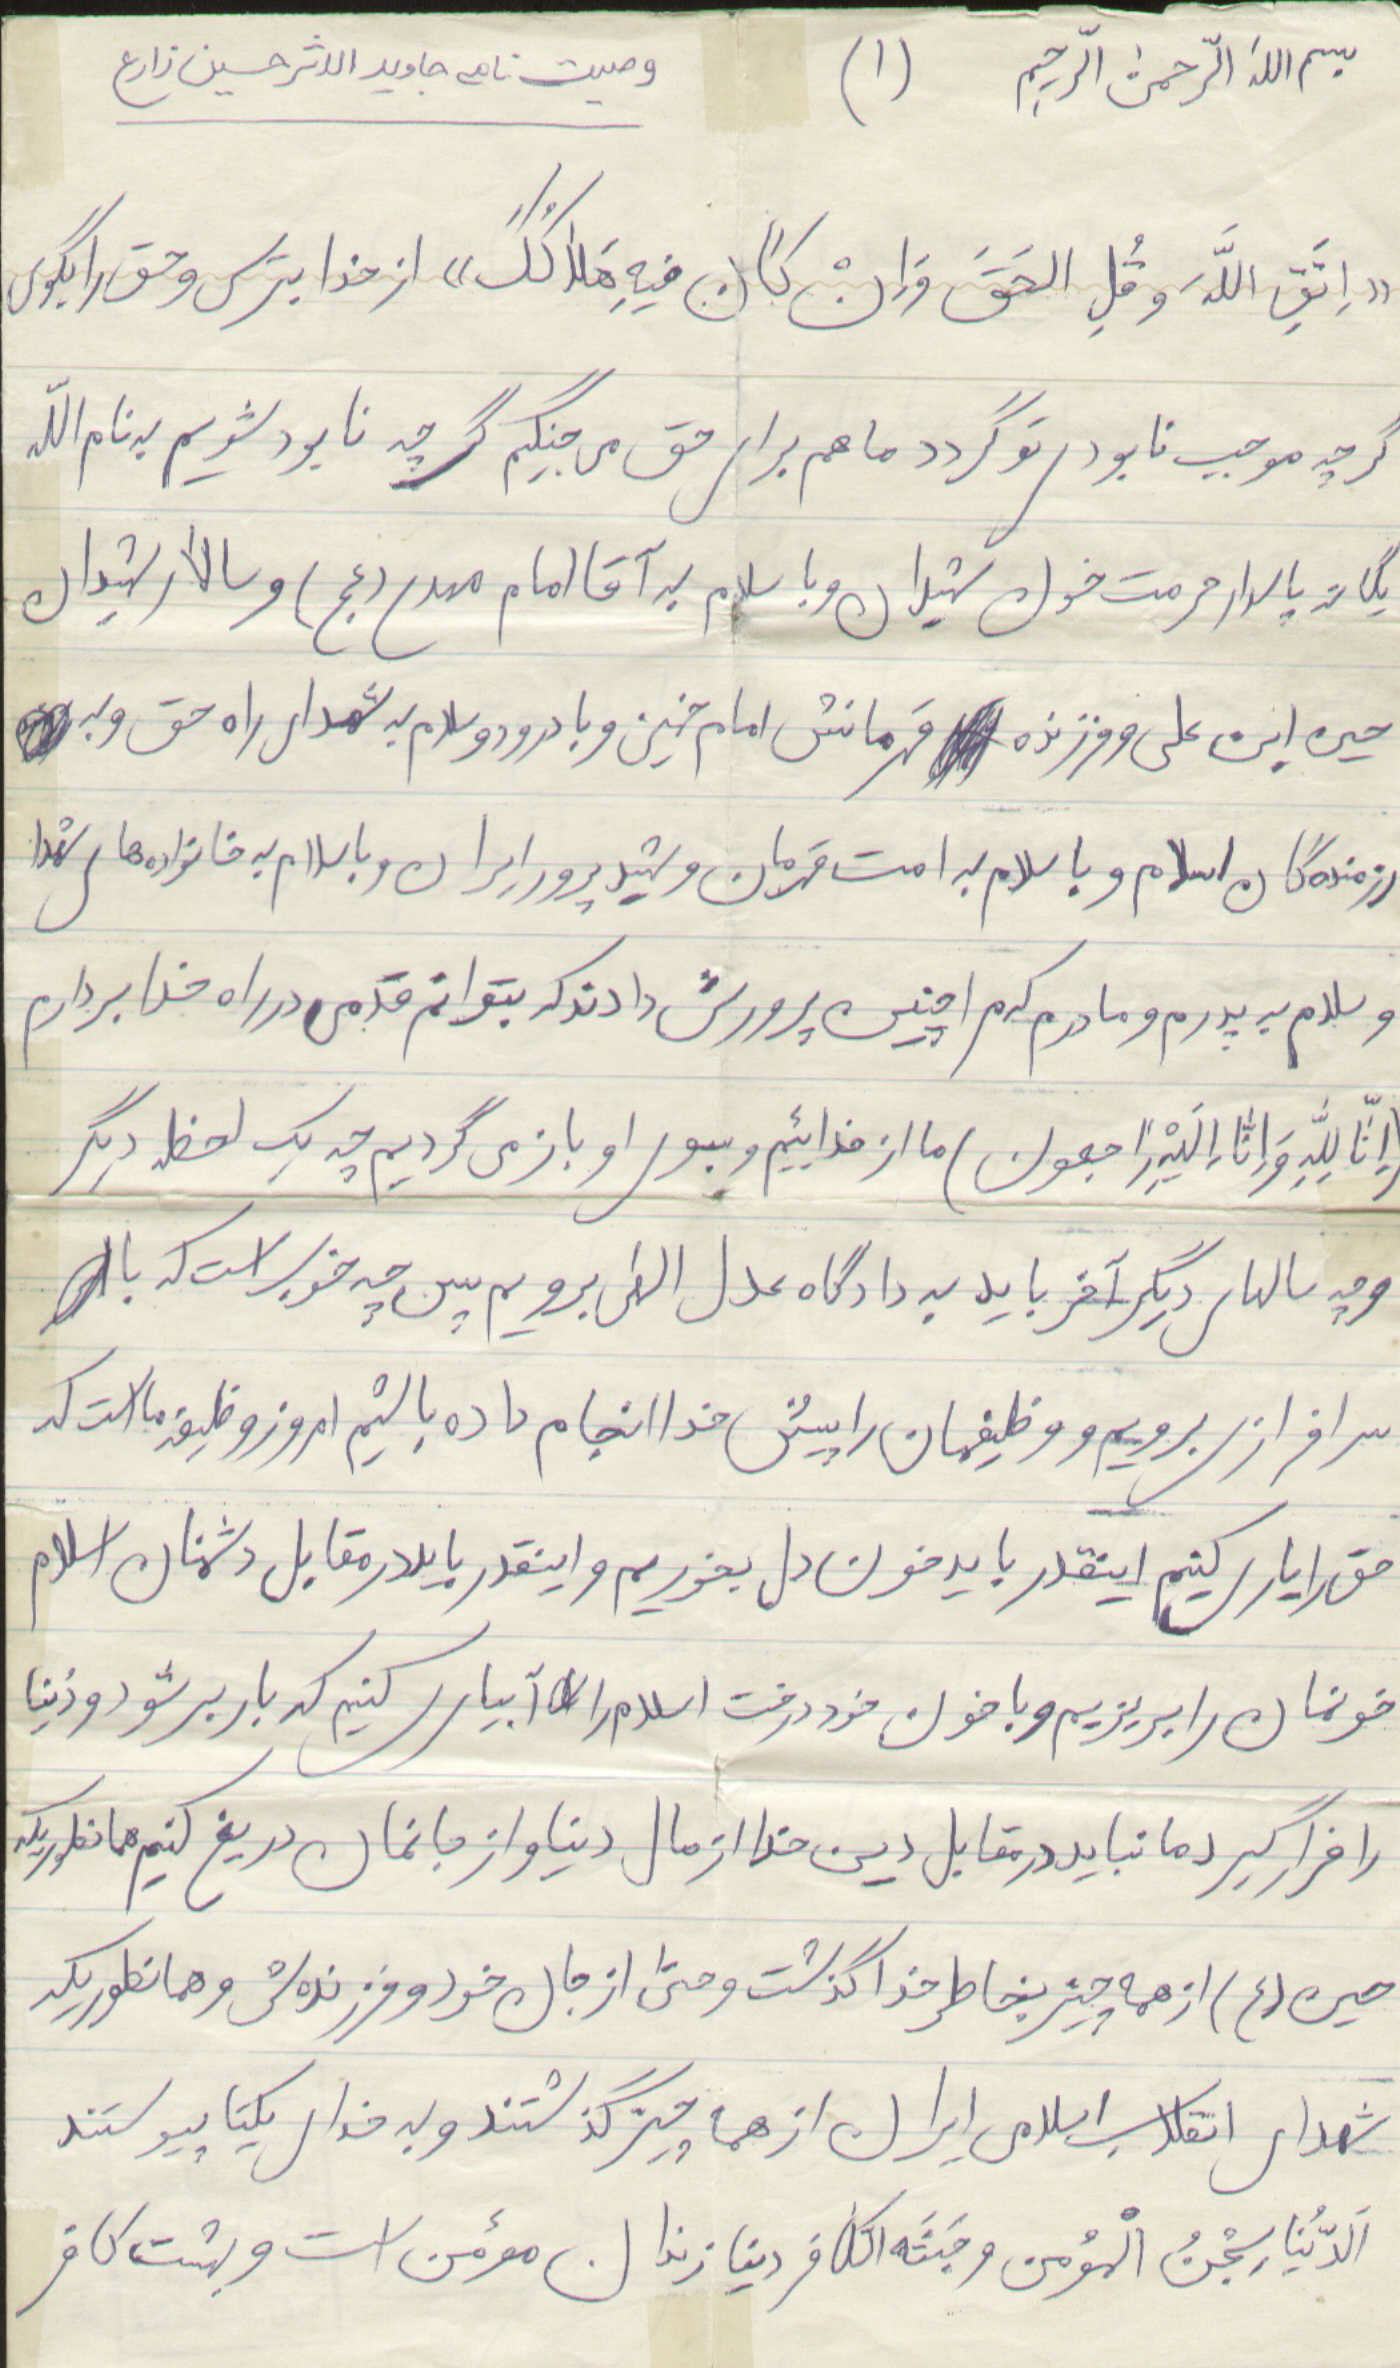 بسم الله الرّحمن الرّحیم (۱) وصیت نامه جاوید الاثر حسین زارع
«اِتَّقِ اللَّهَ وَ قُلِ الحَقَّ وَ اِنْ کانَ فیهِ هَلاکُکَ» از خدا بترس و حق را بگوی
گرچه موجب نابودی تو گردد ما هم برای حق می جنگیم گرچه نابود شویم به نام اللّه
یگانه پاسدار حرمت خون شهیدان و با سلام به آقا امام مهدی (عج) و سالار شهیدان
حسین ابن علی و فرزنده قهرمانش امام خمینی و با درود و سلام به شهدای راه حق و به
رزمنده گان اسلام و با سلام به امت قهرمان و شهید پرور ایران و با سلام به خانواده های شهدا
و سلام به پدرم و مادرم که مرا چنین پرورش دادند که بتوانم قدمی در راه خدا بردارم
(اِنّا لِلّهِ وَ اِنّا اِلَیْهِ راجعون) ما از خدائیم و بسوی او باز می گردیم چه یک لحظه دیگر
و چه سالهای دیگر آخر باید به دادگاه عدل الهی برویم پس چه خوب است که با
سرافرازی برویم و وظیفمان را پیش خدا انجام داده باشیم امروز وظیفه ما است که
حق را یاری کنیم اینقدر باید خون دل بخوریم و اینقدر باید در مقابل دشمنان اسلام
خونمان را بریزیم و با خون خود درخت اسلام را آبیاری کنیم که باربر شود و دنیا
را فرا گیرد ما نباید در مقابل دین خدا از مال دنیا و از جانمان دریغ کنیم همانطوریکه
حسین (ع) از همه چیز بخاطر خدا گذشت و حتی از جان خود و فرزنده‌ش و همانطوریکه
شهدای انقلاب اسلامی ایران از همه چیز گذشتند و به خدای یکتا پیوستند
اَلدُّنیا سِجْنُ الْمؤمن و جَنَّه الکافر دنیا زندان مؤمن است و بهشت کافر